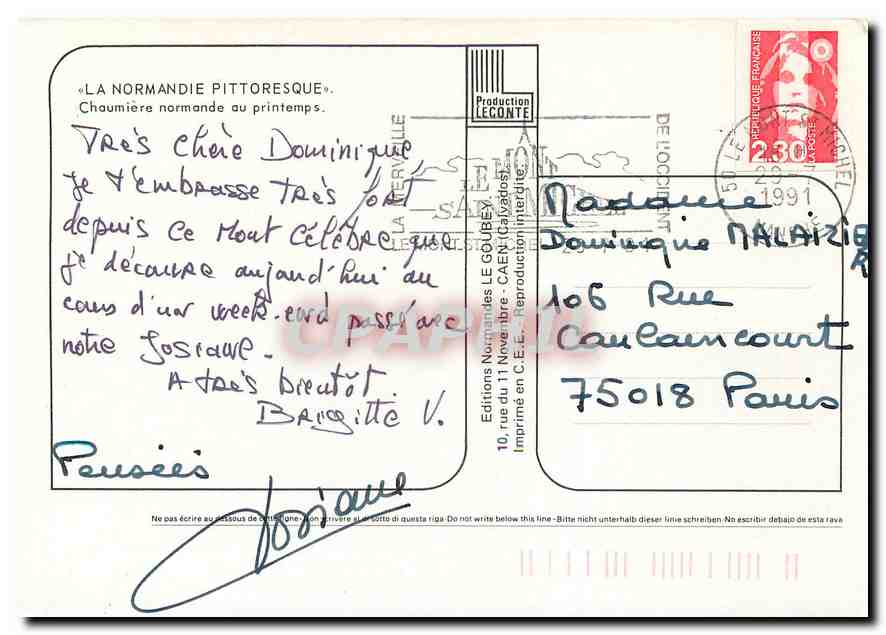 «LA NORMANDIE PITTORESQUE».
Chaumière normande au printemps.
Très Chère Dominique,
Je t'embrasse très fort
depuis ce Mont Célèbre que
je découvre aujourd'hui au
cours d'un week-end passé avec
notre Josiane.
A très bientôt
Brigitte V.
Pensées
Josiane
Production
LECONTE
Editions Normandes LE GOUBEY
10, rue du 11 Novembre - CAEN (Calvados)
Imprimé en C.E.E. - Reproduction interdite.
LA MERVEILLE
DE L'OCCIDENT
LE MONT
SAINT
LE MONT-ST-MICHEL
REPUBLIQUE FRANÇAISE
2,30
LA POSTE
50 LE MONT-ST-MICHEL
1991
MANCHE
Madame
Dominique MALAIZIER
106 Rue
Caulaincourt
75018 Paris
CPARAMA
Ne pas écrire au dessous de cette ligne - Non scrivere al di sotto di questa riga - Do not write below this line - Bitte nicht unterhalb dieser linie schreiben - No escribir debajo de esta raya